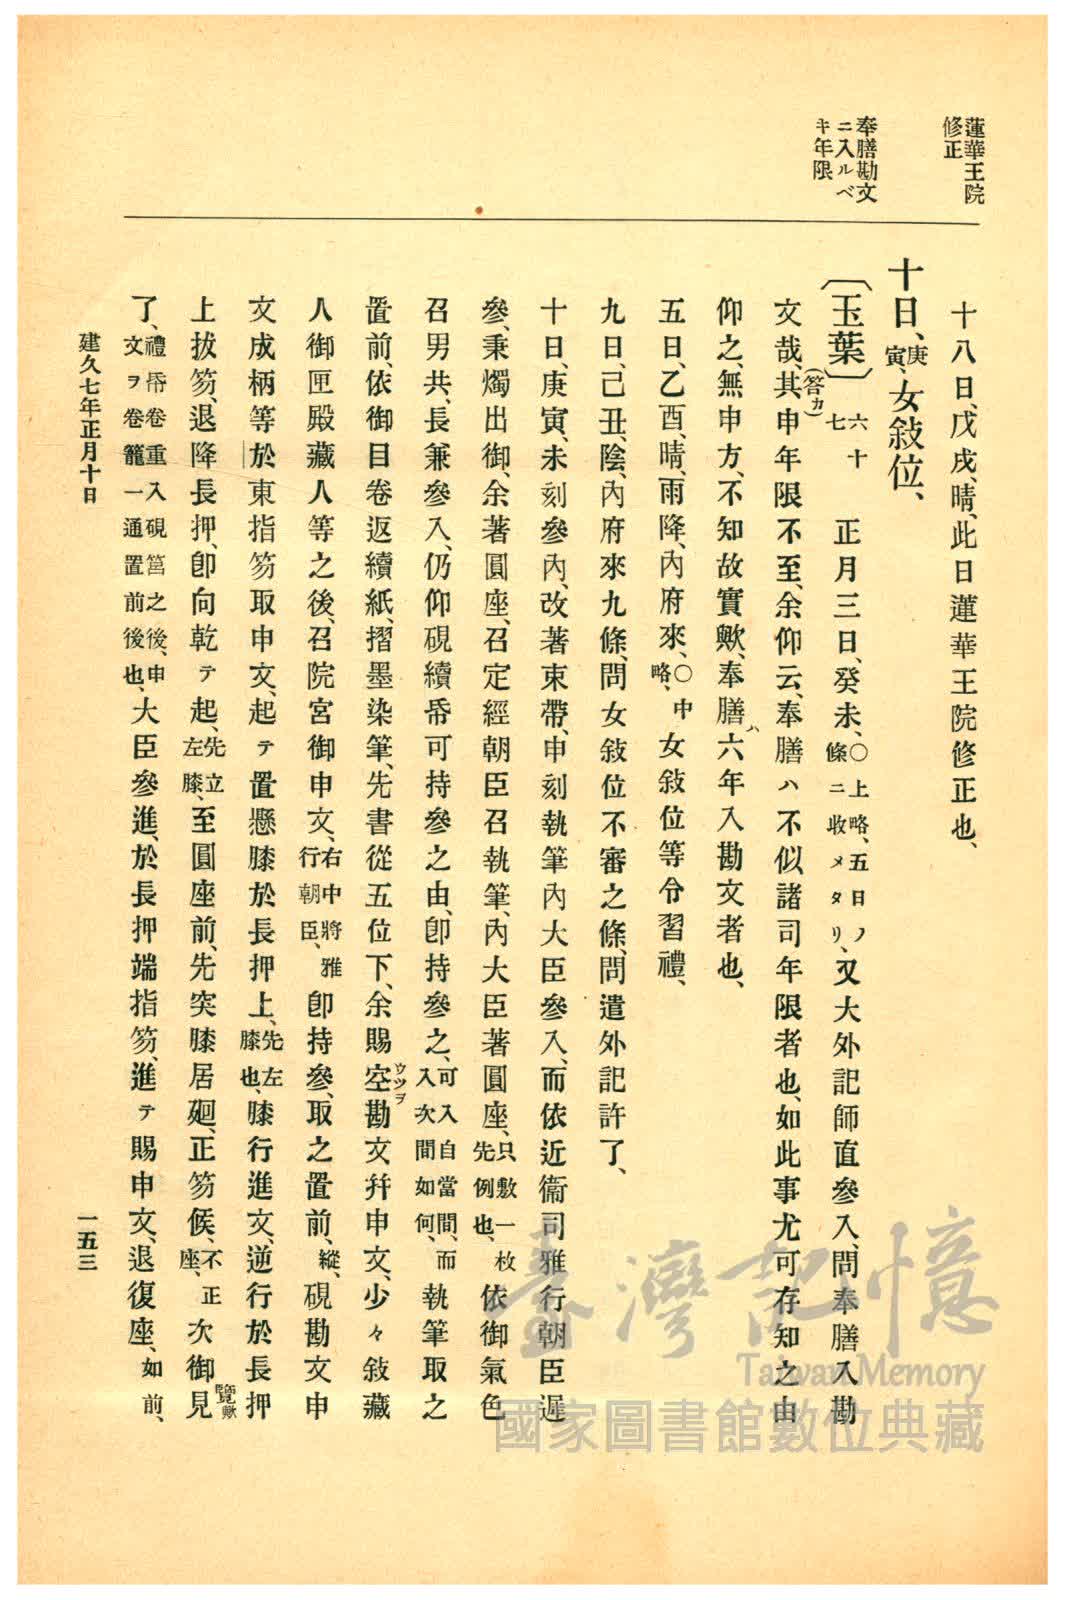 蓮華王院
修正
奉膳勘文
ニ入ルベ
キ年限
十八日、戊戌、晴、此日蓮華王院修正也、
十日、庚寅、女敍位、
〔玉葉〕六十七 正月三日、癸未、〇上略、五日ノ條ニ收メタリ、又大外記師直參入、問奉膳入勘
文哉、其申(答カ)年限不至、余仰云、奉膳ハ不似諸司年限者也、如此事尤可存知之由
仰之、無申方、不知故實歟、奉膳ハ六年入勘文者也、
五日、乙酉、晴、雨降、內府來、〇中略、女敍位等令習禮、
九日、己丑、陰、內府來九條、問女敍位不審之條、問遣外記許了、
十日、庚寅、未刻參內、改著束帶、申刻執筆內大臣參入、而依近衞司雅行朝臣遲
參、秉燭出御、余著圓座、召定經朝臣召執筆、內大臣著圓座、只敷一枚先例也、依御氣色
召男共、長兼參入、仍仰硯續帋可持參之由、卽持參之、可入自當間、而入次間如何、執筆取之
置前、依御目卷返續紙、摺墨染筆、先書從五位下、余賜空(ウツヲ)勘文幷申文、少々敍藏
人御匣殿藏人等之後、召院宮御申文、右中將雅行朝臣、卽持參、取之置前、縱、硯勘文申
文成柄等於東指笏取申文、起テ置懸膝於長押上、先左膝也、膝行進文、逆行於長押
上拔笏、退降長押、卽向乾テ起、先立左膝、至圓座前、先突膝居廻、正笏候、不正座、次御見(覽歟)
了、禮帋卷重入硯筥之後、申文ヲ卷籠一通置前後也、大臣參進、於長押端指笏、進テ賜申文、退復座、如前、
建久七年正月十日
一五三
臺灣記憶
Taiwan Memory
國家圖書館數位典藏